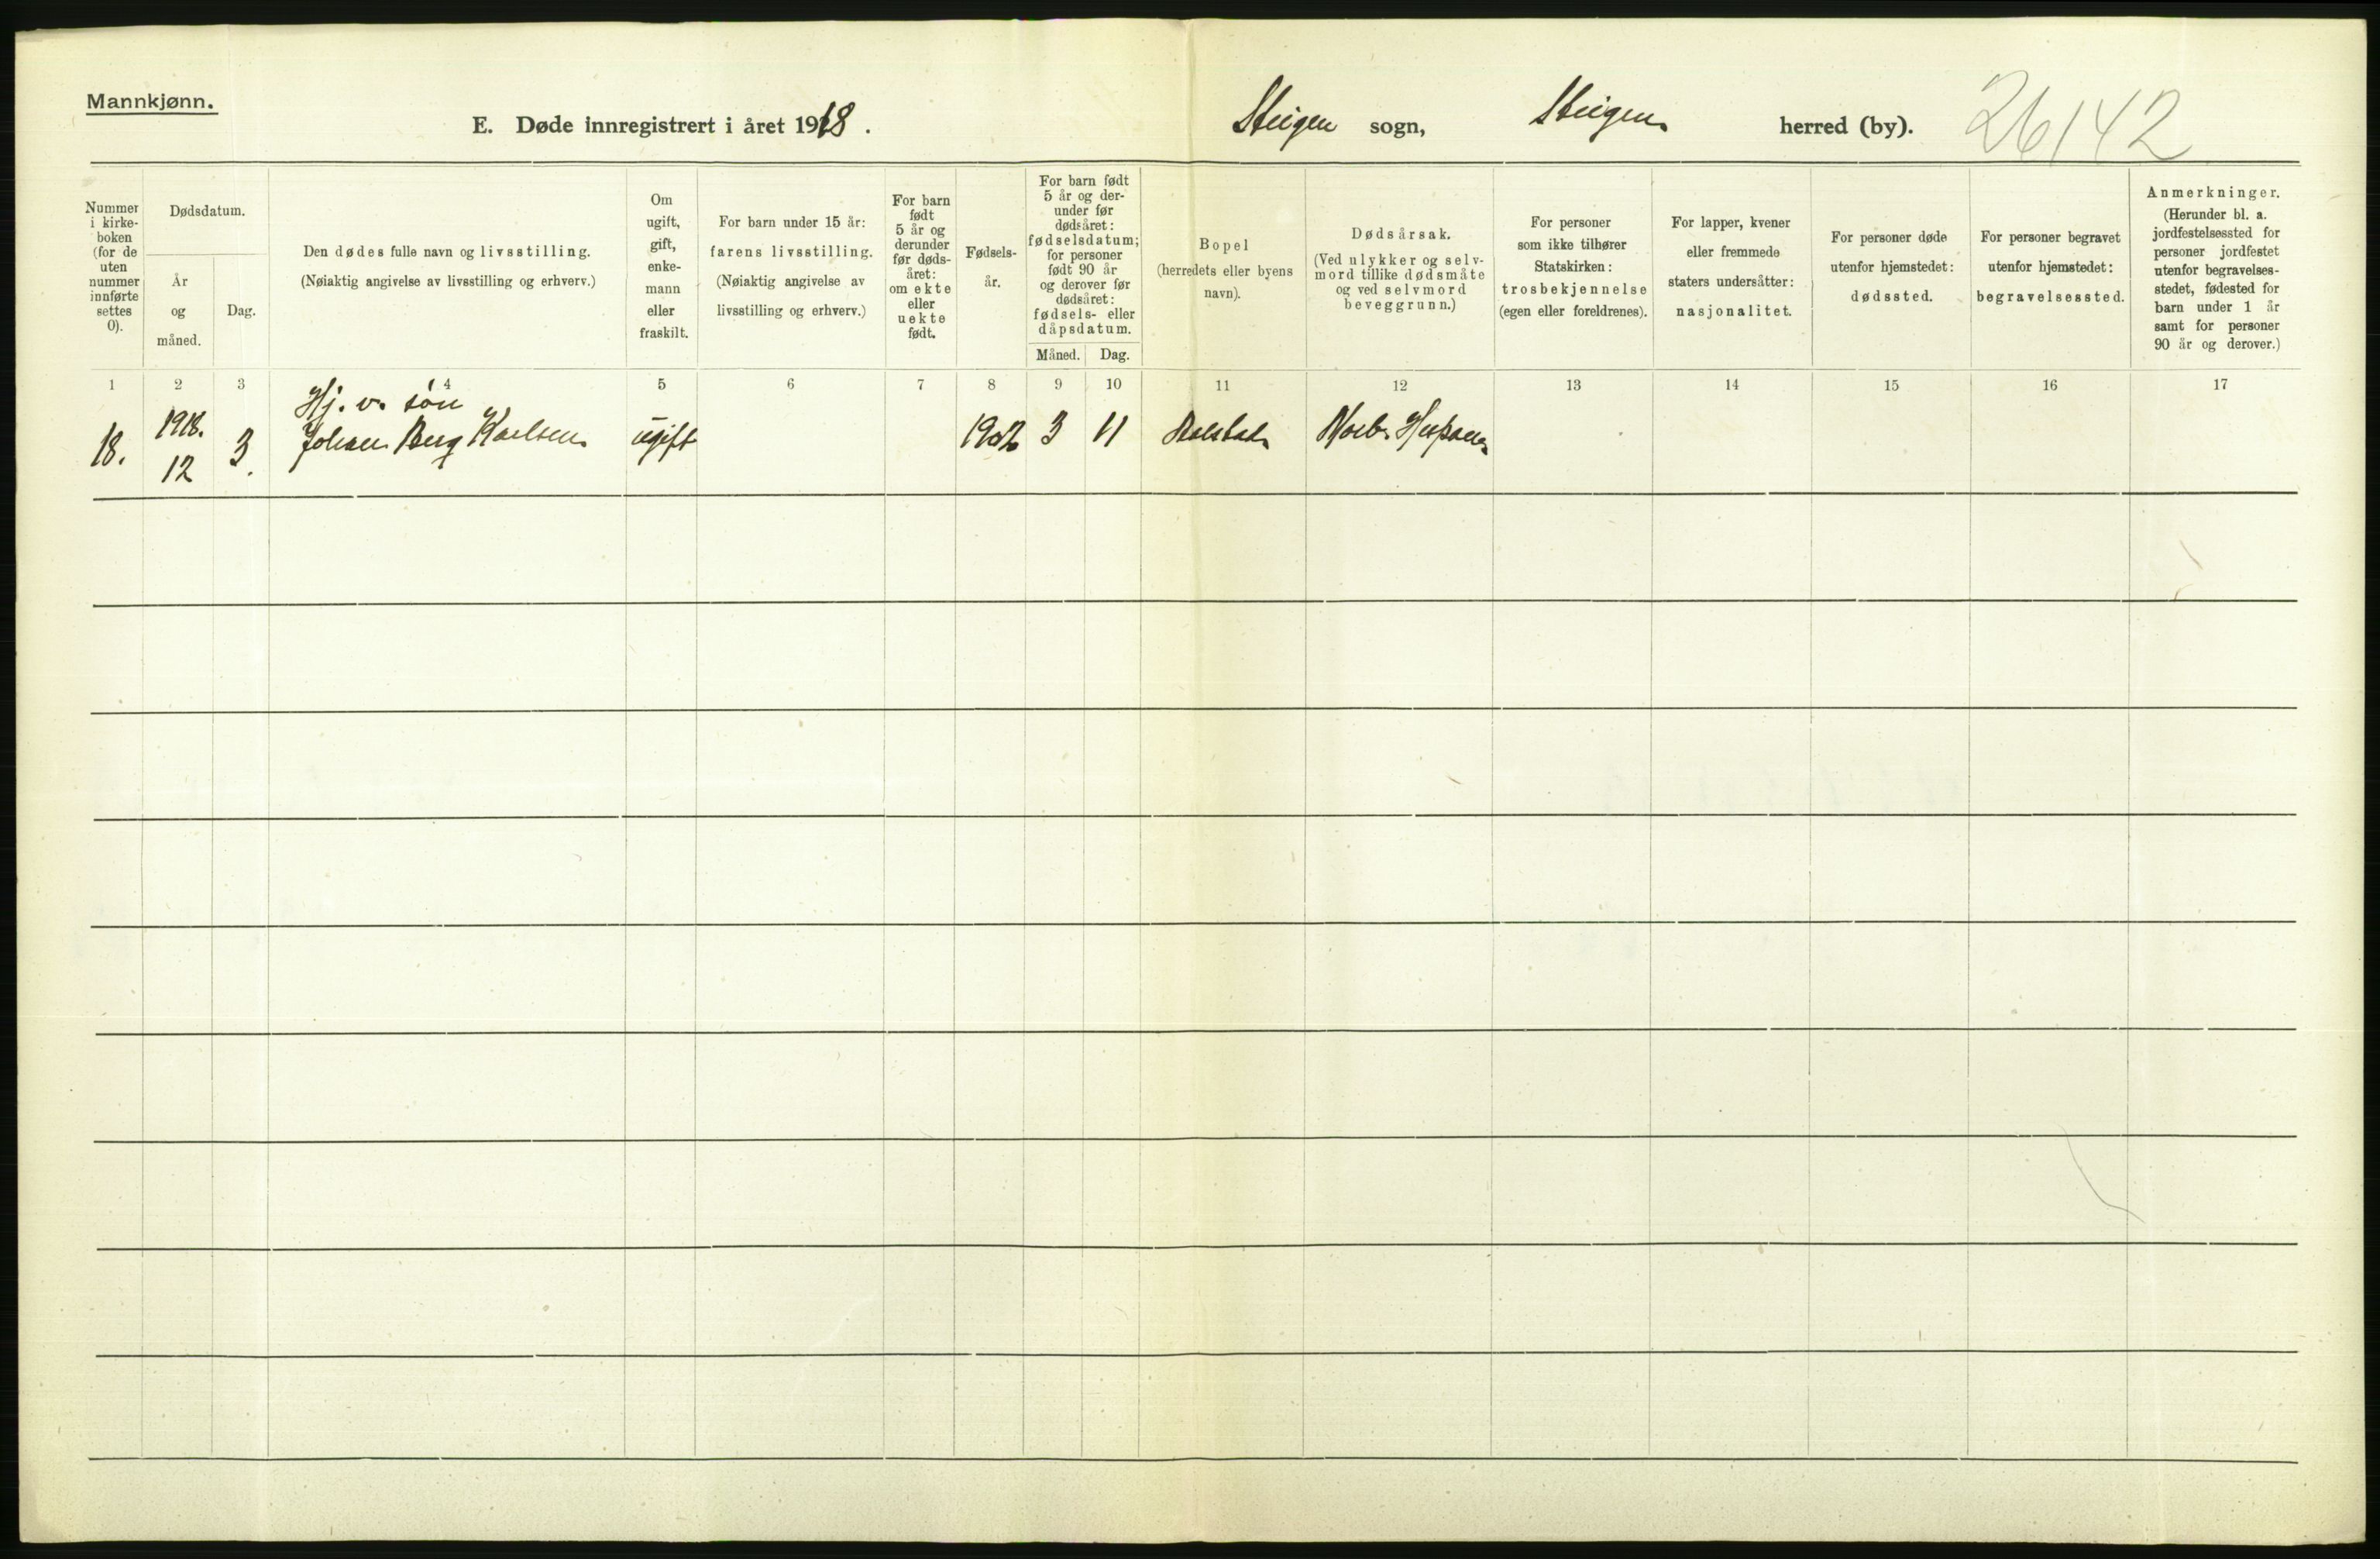 Mannkjønn.
E. Døde innregistrert i året 1918. Steigen sogn, Steigen herred (by). 26142
Nummer i kirke-boken (for de uten nummer innførte settes 0).
Dødsdatum.
År og måned.
Dag.
Den dødes fulle navn og livsstilling.
(Nøiaktig angivelse av livsstilling og erhverv.)
Om ugift, gift, enke-mann eller fraskilt.
For barn under 15 år:
farens livsstilling.
(Nøiaktig angivelse av
livsstilling og erhverv.)
For barn født 5 år og derunder før døds-året: om ekte eller uekte født.
Fødsels-år.
For barn født 5 år og der-under før dødsåret: fødselsdatum; for personer født 90 år og derover før dødsåret: fødsels- eller dåpsdatum.
Måned. Dag.
Bopel
(herredets eller byens
navn).
Dødsårsak.
(Ved ulykker og selv-
mord tillike dødsmåte
og ved selvmord
beveggrunn.)
For personer
som ikke tilhører
Statskirken:
trosbekjennelse
(egen eller foreldrenes).
For lapper, kvener
eller fremmede
staters undersåtter:
nasjonalitet.
For personer døde
utenfor hjemstedet:
dødssted.
For personer begravet
utenfor hjemstedet:
begravelsessted.
Anmerkninger.
(Herunder bl. a.
jordfestelsessted for
personer jordfestet
utenfor begravelses-
stedet, fødested for
barn under 1 år
samt for personer
90 år og derover.)
1 2 3 4 5 6 7 8 9 10 11 12 13 14 15 16 17
Hj. v. søn
18. 1918. 12 3. Johan Berg Karlsen ugift 1902 3 11 Morb. Hispan